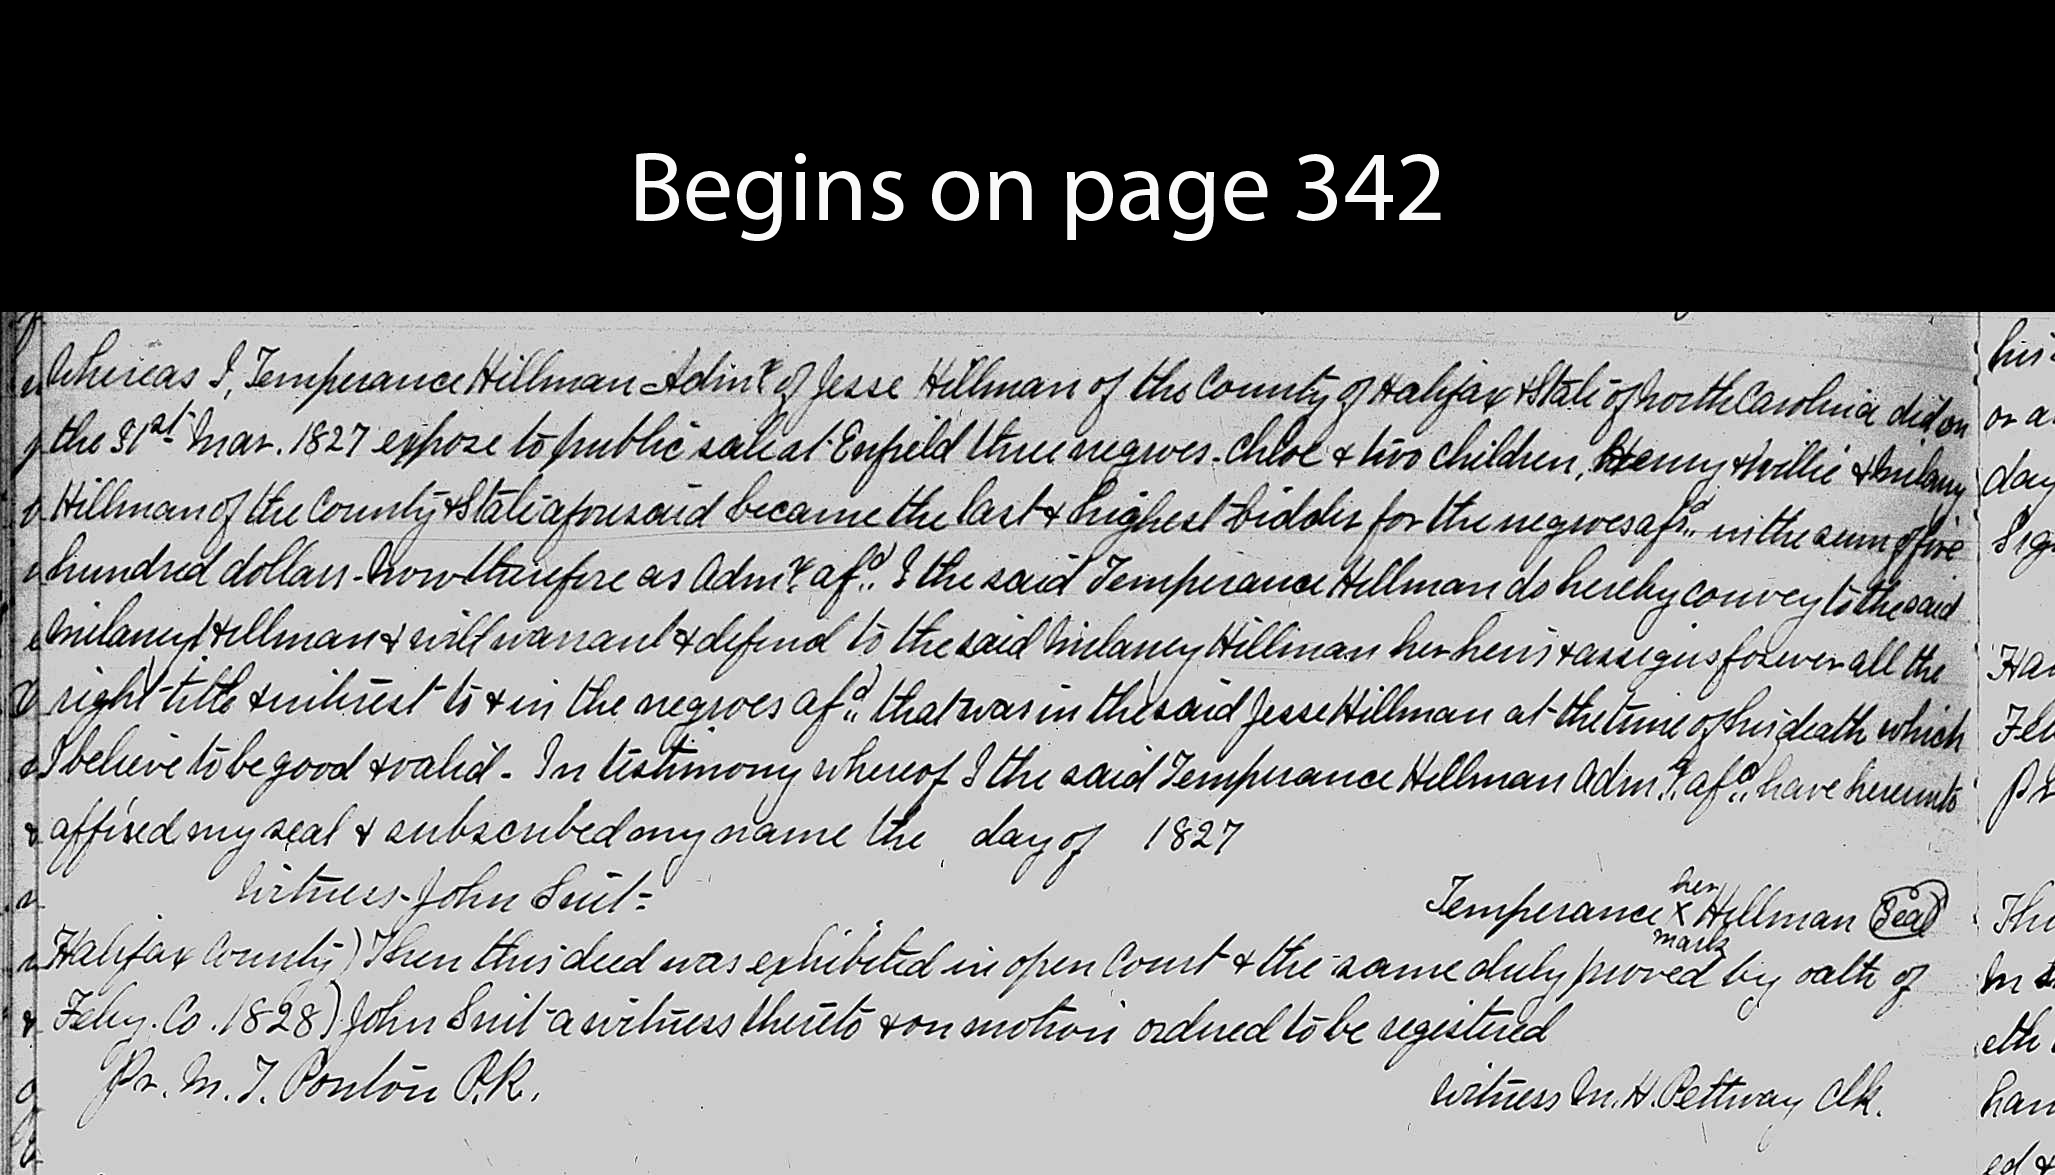 Begins on page 342
Whereas I, Temperance Hillman Admx of Jesse Hillman of the County of Halifax & State of North Carolina did on
the 31st Mar. 1827 expose to public sale at Enfield three negroes. Chloe & two children, Henry & Willie & Milany
Hillman of the County & State aforesaid became the last & highest bidder for the negroes afsd. in the sum of five
hundred dollars - Now therefore as Admx. afd. I the said Temperance Hillman do hereby convey to the said
Milaney Hillman & will warrant & defend to the said Milaney Hillman her heirs & assigns forever all the
right title & interest to & in the negroes afd. that was in the said Jesse Hillman at the time of his death which
I believe to be good & valid - In testimony whereof I the said Temperance Hillman Admx. afd. have hereunto
affixed my seal & subscribed my name the day of 1827
Witness - John Suit -
Temperance her X mark Hillman Seal
Halifax County) Then this deed was exhibited in open Court & the same duly proved by oath of
Feby. Co. 1828) John Suit a witness thereto & on motion ordered to be registered
Pr. M. T. Ponton P.R.
Witness M. H. Pettway Clk.